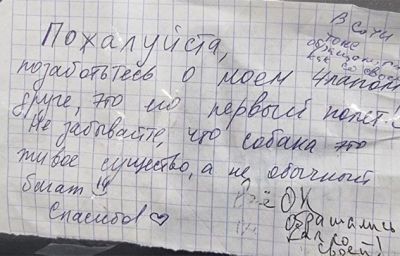 Пожалуйста,
позаботьтесь о моем 4лапом
друге, это его первый полет!!
Не забывайте, что собака это
живое существо, а не обычный
багаж!!
Спасибо! ♡
В Сочи
тоже
обращались
как со своей
Всё ОК
Обращались
как со
своей!